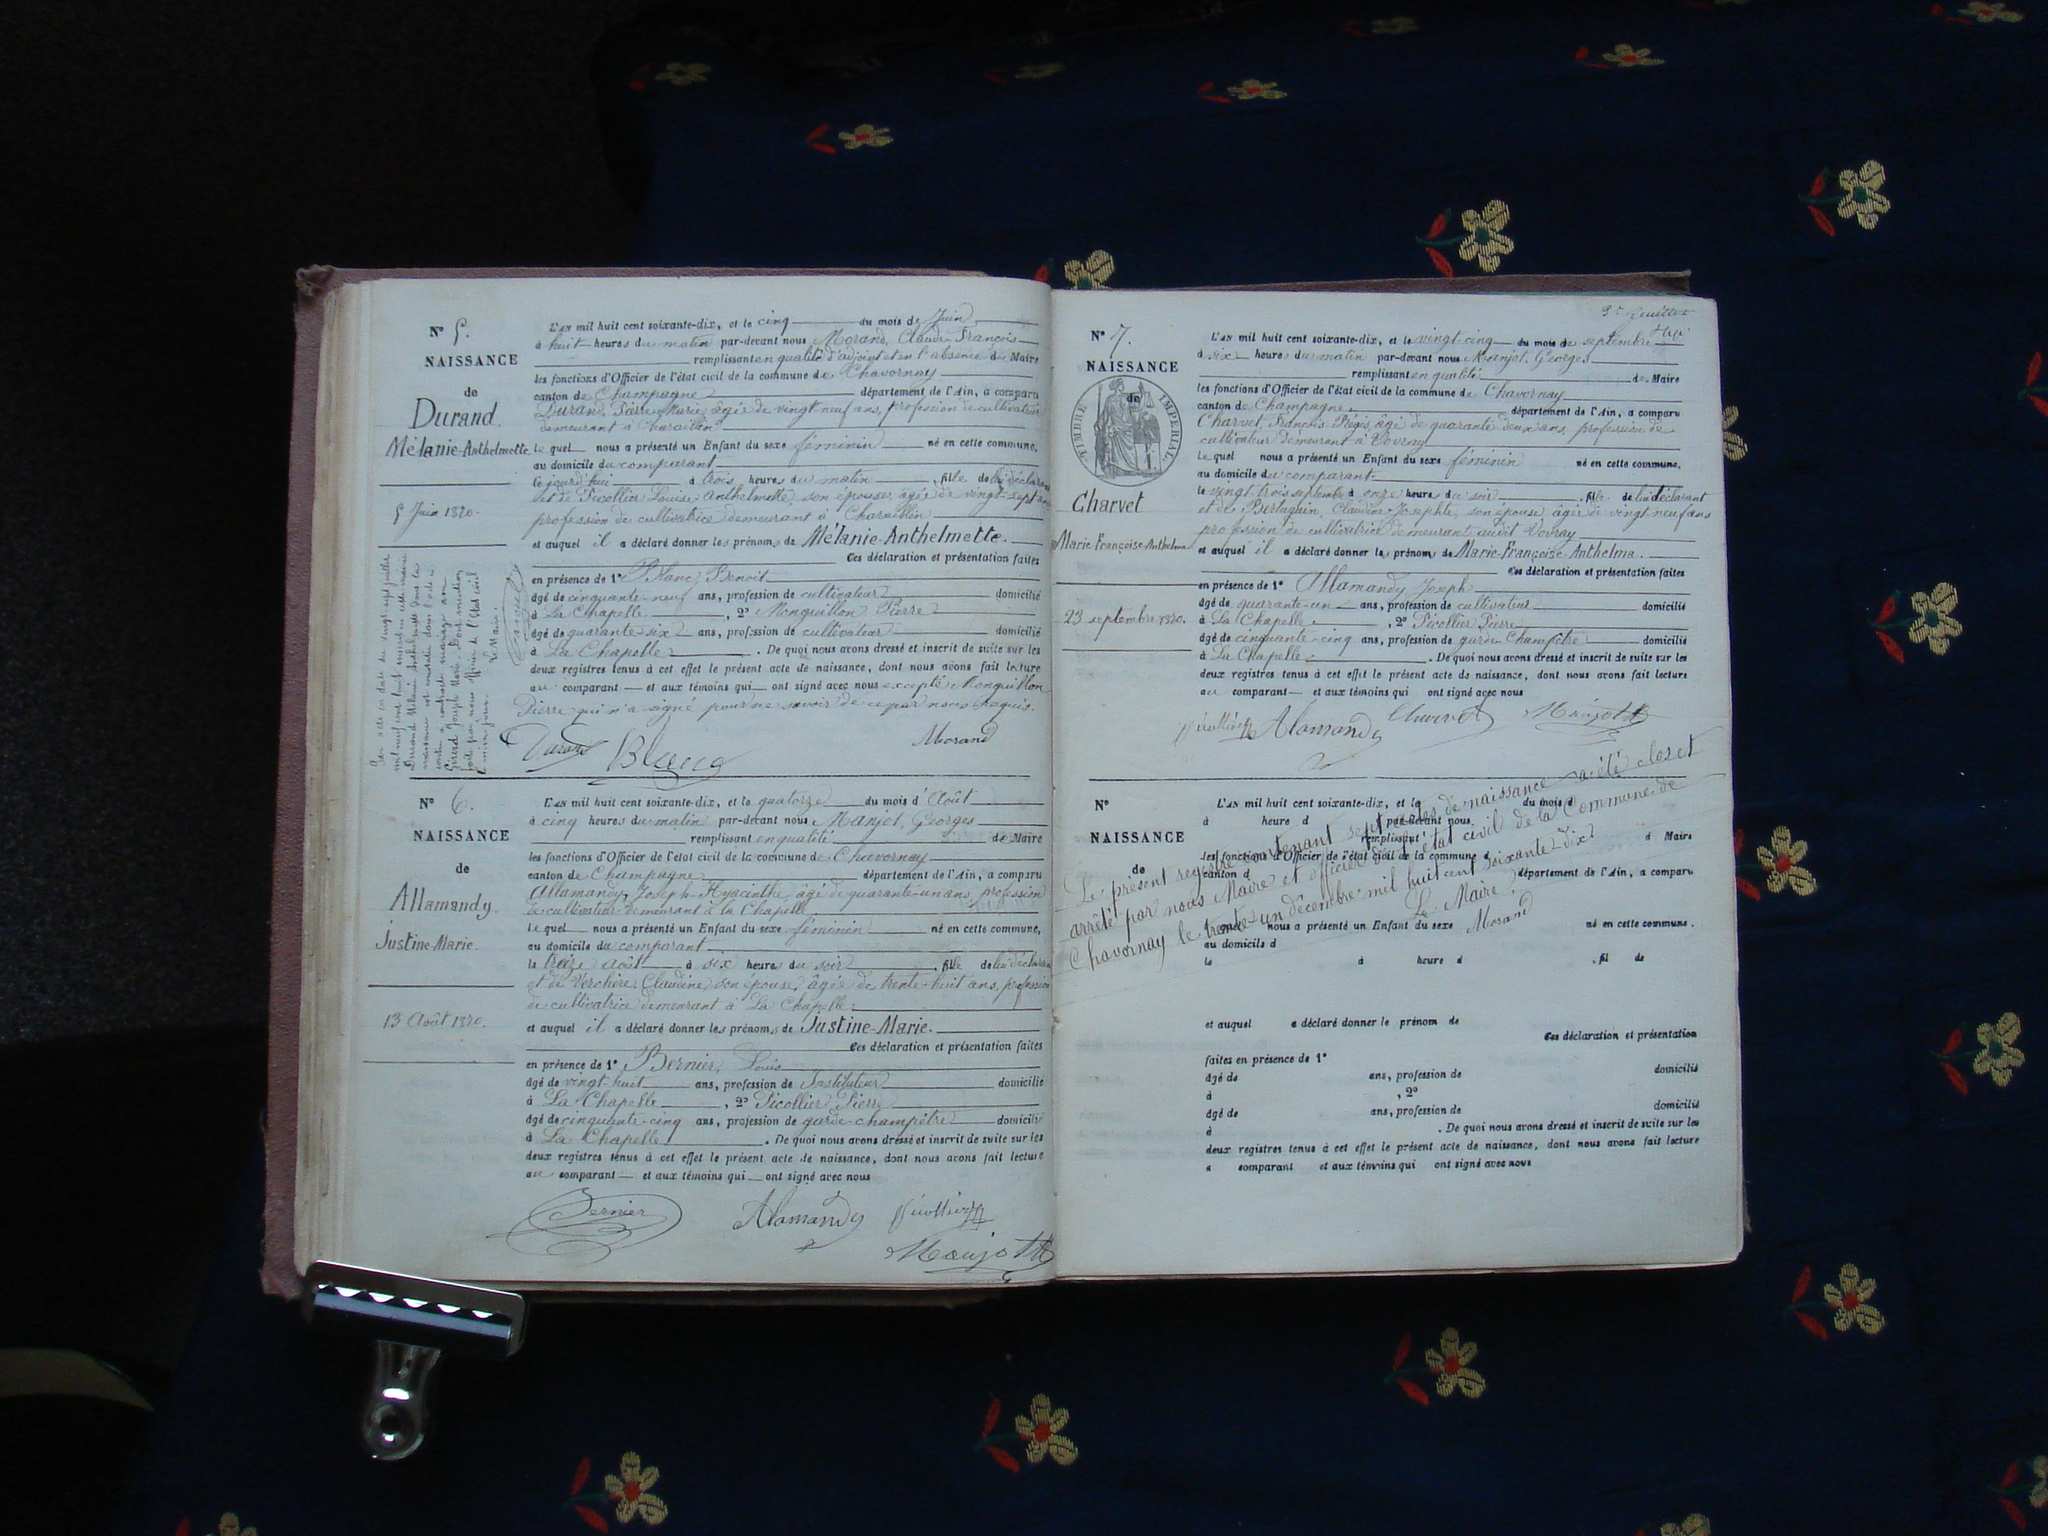 N° 5.
NAISSANCE
de
Durand
Mélanie-Anthelmette
5 Juin 1870.
L'AN mil huit cent soixante-dix, et le cinq du mois de Juin
à huit heures du matin par-devant nous Morand, Claude François
remplissant en qualité d'adjoint et en l'absence de Maire
les fonctions d'Officier de l'état civil de la commune de Chavornay
canton de Champagne département de l'Ain, a comparu
Durand, Pierre Marie, âgé de vingt neuf ans, profession de cultivateur
demeurant à
le quel nous a présenté un Enfant du sexe féminin né en cette commune,
au domicile du comparant
Cejourd'hui à trois heures du matin , fille de lui déclarant
et de Picollier Louise Anthelmette son épouse, âgée de vingt-sept ans
profession de cultivatrice demeurant à
et auquel il a déclaré donner les prénoms de Mélanie-Anthelmette.
Ces déclaration et présentation faites
en présence de 1° Blanc, Benoit
âgé de cinquante-neuf ans, profession de cultivateur domicilié
à La Chapelle , 2° Monguillon Pierre
âgé de quarante-six ans, profession de cultivateur domicilié
à La Chapelle . De quoi nous avons dressé et inscrit de suite sur les
deux registres tenus à cet effet le présent acte de naissance, dont nous avons fait lecture
au comparant et aux témoins qui ont signé avec nous excepté Monguillon
Pierre qui n'a signé pour ne savoir de ce par nous requis.
Durand Blanc Morand
N° 6.
NAISSANCE
de
Allamandy.
Justine-Marie.
13 Août 1870.
L'AN mil huit cent soixante-dix, et le quatorze du mois d'Août
à cinq heures du matin par-devant nous Manjot, Georges
remplissant en qualité de Maire
les fonctions d'Officier de l'état civil de la commune de Chavornay
canton de Champagne département de l'Ain, a comparu
Allamandy, Joseph-Hyacinthe, âgé de quarante-un ans, profession
de cultivateur demeurant à la Chapelle
le quel nous a présenté un Enfant du sexe féminin né en cette commune,
au domicile du comparant
le treize août à six heures du soir , fille de lui déclarant
et de Verchère Claudine son épouse, âgée de trente-huit ans, profession
de cultivatrice demeurant à La Chapelle
et auquel il a déclaré donner les prénoms de Justine-Marie.
Ces déclaration et présentation faites
en présence de 1° Bernier, Louis
âgé de vingt-huit ans, profession de Instituteur domicilié
à La Chapelle , 2° Picollier Pierre
âgé de cinquante-cinq ans, profession de garde-champêtre domicilié
à La Chapelle . De quoi nous avons dressé et inscrit de suite sur les
deux registres tenus à cet effet le présent acte de naissance, dont nous avons fait lecture
au comparant et aux témoins qui ont signé avec nous
Bernier Alamandy Picollier
Manjot
N° 7.
NAISSANCE
de
TIMBRE IMPERIAL
Charvet
Marie-Françoise-Anthelma
23 septembre 1870.
L'AN mil huit cent soixante-dix, et le vingt-cinq du mois de septembre
à six heures du matin par-devant nous Manjot, Georges
remplissant en qualité de Maire
les fonctions d'Officier de l'état civil de la commune de Chavornay
canton de Champagne département de l'Ain, a comparu
Charvet, François Régis, âgé de quarante deux ans, profession de
cultivateur demeurant à Vovray
le quel nous a présenté un Enfant du sexe féminin né en cette commune,
au domicile du comparant
le vingt-trois septembre à onze heures du soir , fille de lui déclarant
et de Claudine-Josephte, son épouse âgée de vingt-neuf ans
profession de cultivatrice demeurant audit Vovray
et auquel il a déclaré donner les prénoms de Marie-Françoise-Anthelma.
Ces déclaration et présentation faites
en présence de 1° Allamandy Joseph
âgé de quarante-un ans, profession de cultivateur domicilié
à La Chapelle , 2° Picollier Pierre
âgé de cinquante-cinq ans, profession de garde Champêtre domicilié
à La Chapelle . De quoi nous avons dressé et inscrit de suite sur les
deux registres tenus à cet effet le présent acte de naissance, dont nous avons fait lecture
au comparant et aux témoins qui ont signé avec nous
Picollier Alamandy Charvet Manjot
Le présent registre contenant sept actes de naissance a été clos et
arrêté par nous Maire et officier de l'état civil de la Commune de
Chavornay le trente-un décembre mil huit cent soixante-dix
Le Maire
Morand
N°
NAISSANCE
de
L'AN mil huit cent soixante-dix, et le du mois d
à heure d par-devant nous
remplissant d Maire
les fonctions d'Officier de l'état civil de la commune d
canton d département de l'Ain, a comparu
le quel nous a présenté un Enfant du sexe né en cette commune,
au domicile d
le à heure d , fil de
et auquel a déclaré donner le prénom de
Ces déclaration et présentation
faites en présence de 1°
âgé de ans, profession de domicilié
à , 2°
âgé de ans, profession de domicilié
à . De quoi nous avons dressé et inscrit de suite sur les
deux registres tenus à cet effet le présent acte de naissance, dont nous avons fait lecture
a comparant et aux témoins qui ont signé avec nous